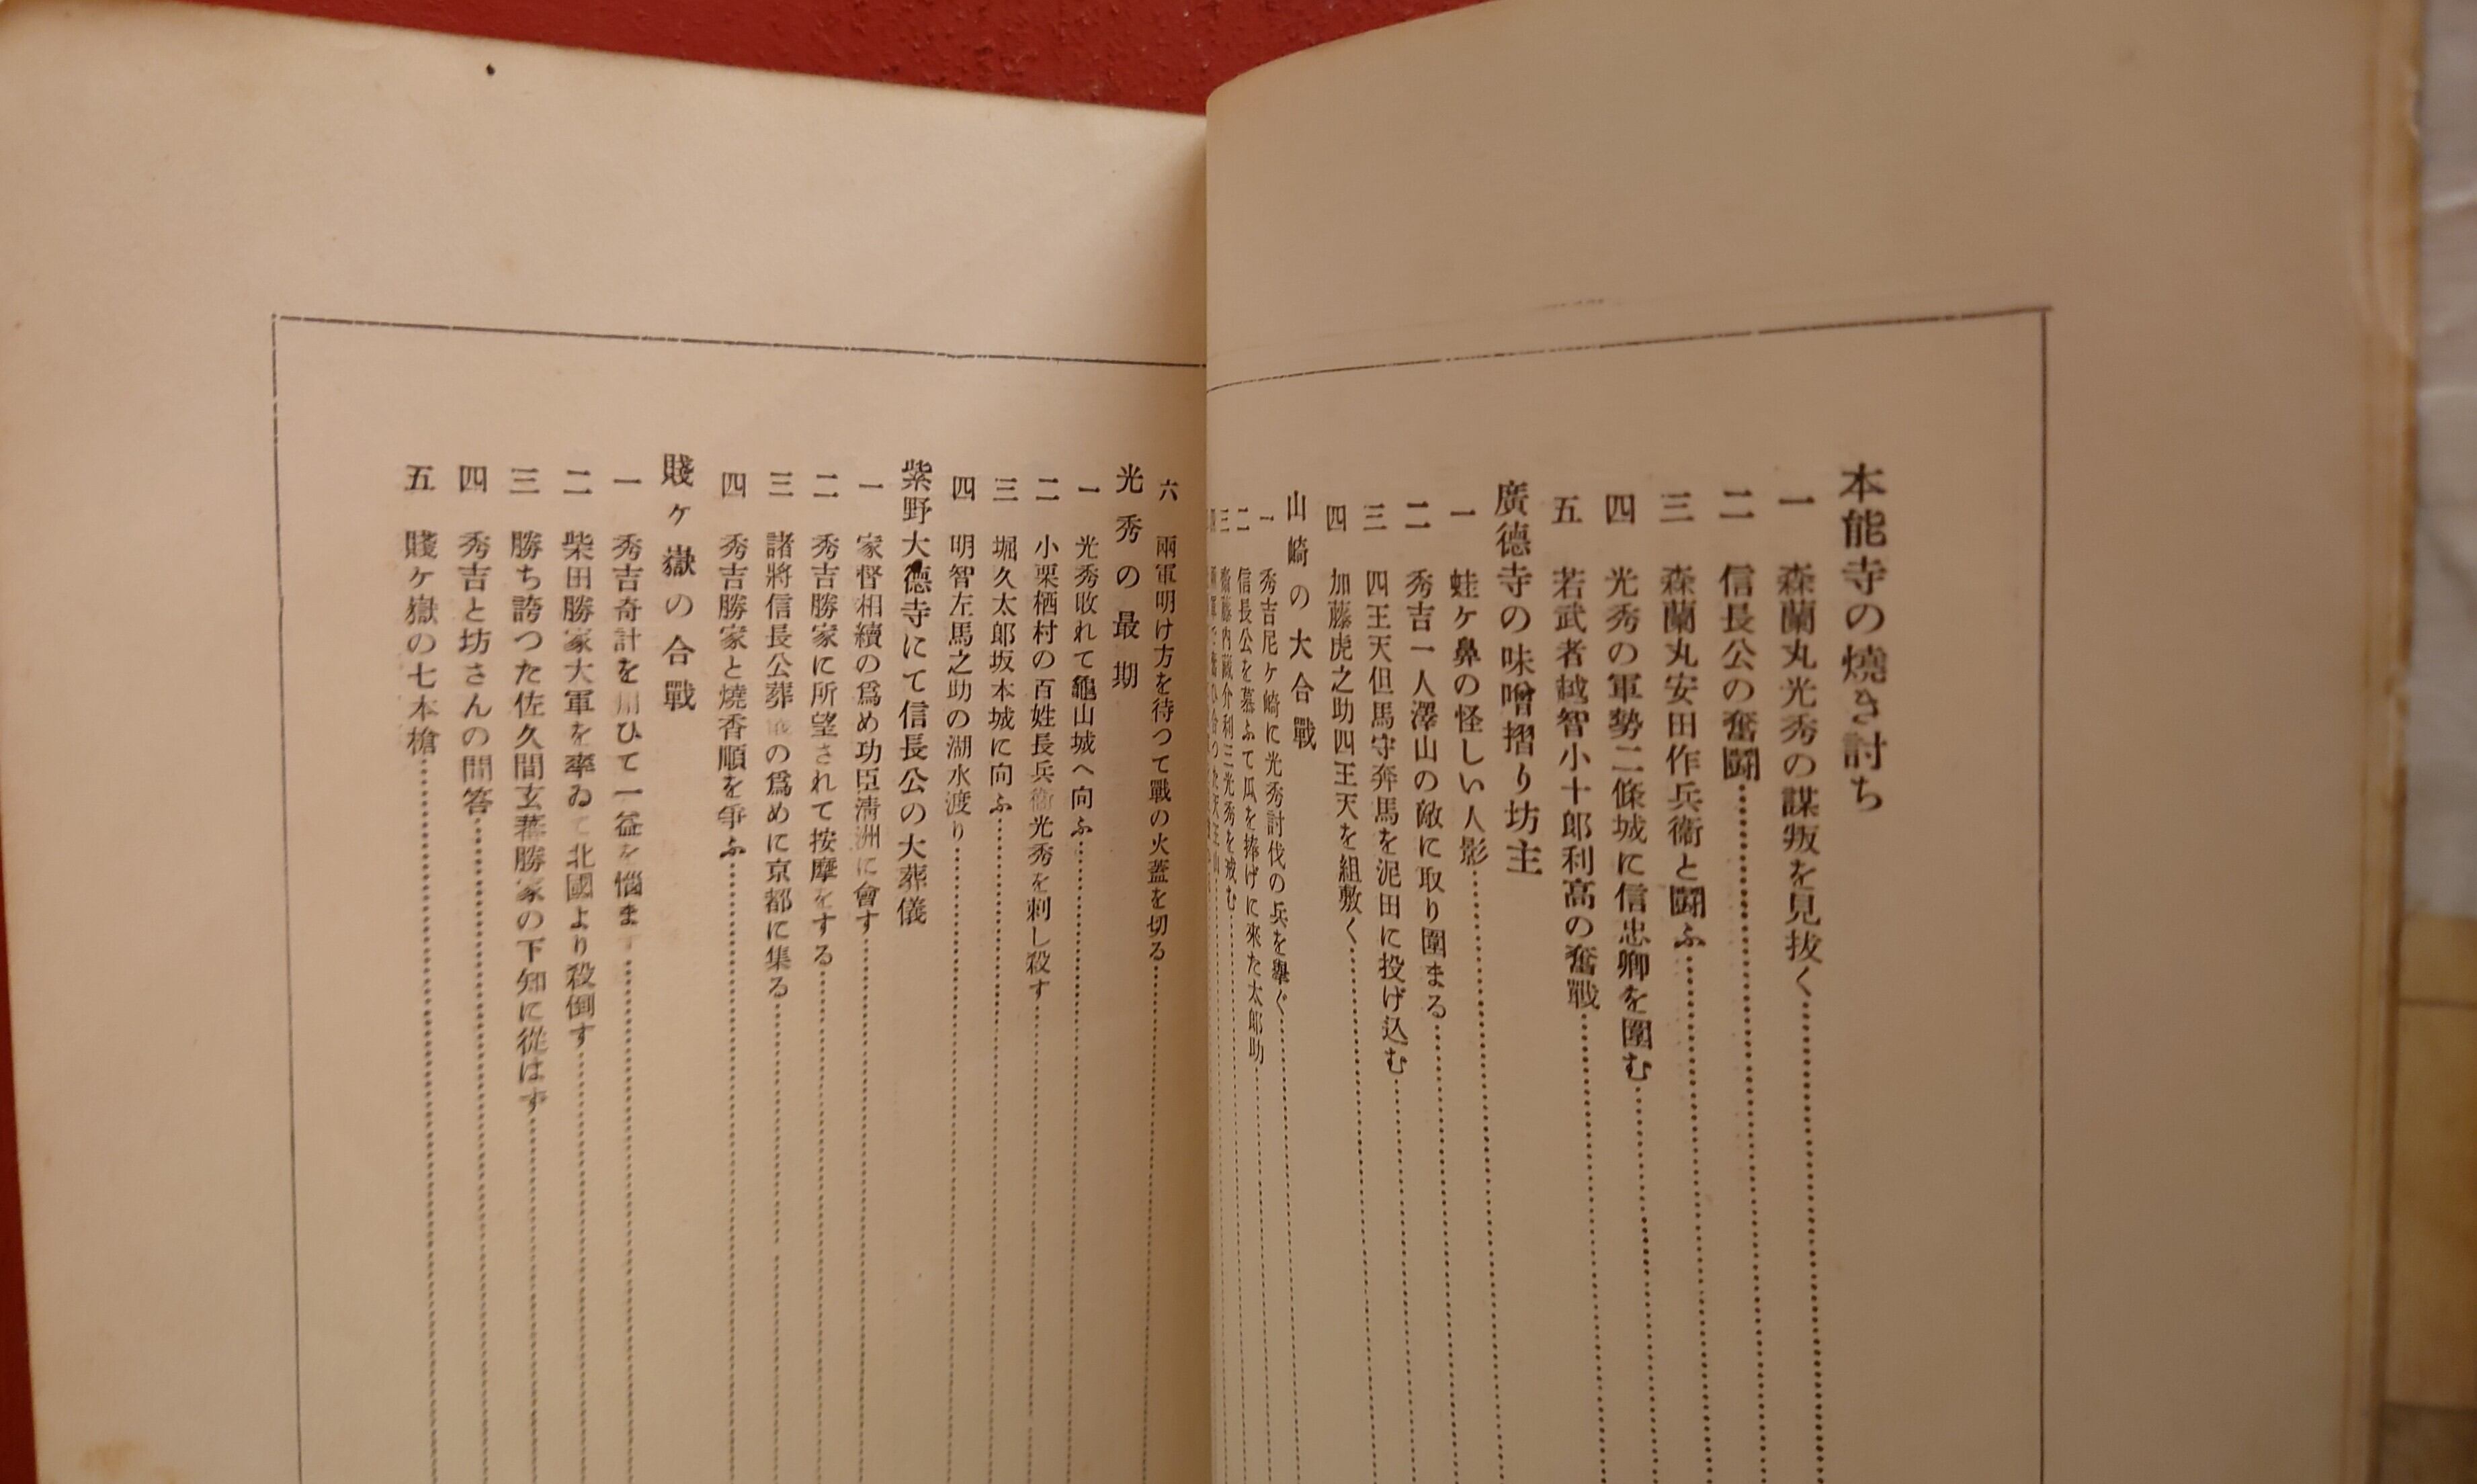 本能寺の燒き討ち
一 森蘭丸光秀の謀叛を見抜く
二 信長公の奮鬪
三 森蘭丸安田作兵衞と鬪ふ
四 光秀の軍勢二條城に信忠卿を圍む
五 若武者越智小十郎利高の奮戰
廣德寺の味噌摺り坊主
一 蛙ケ鼻の怪しい人影
二 秀吉一人澤山の敵に取り圍まる
三 四王天但馬守奔馬を泥田に投げ込む
四 加藤虎之助四王天を組敷く
山崎の大合戰
一 秀吉尼ケ崎に光秀討伐の兵を擧ぐ
二 信長公を慕ふて瓜を捧げに來た太郎助
三 齋藤內藏介利三光秀を戒む
四
六 兩軍明け方を待つて戰の火蓋を切る
光秀の最期
一 光秀敗れて龜山城へ向ふ
二 小栗栖村の百姓長兵衞光秀を刺し殺す
三 堀久太郎坂本城に向ふ
四 明智左馬之助の湖水渡り
紫野大德寺にて信長公の大葬儀
一 家督相續の爲め功臣淸洲に會す
二 秀吉勝家に所望されて按摩をする
三 諸將信長公葬儀の爲めに京都に集る
四 秀吉勝家と燒香順を爭ふ
賤ヶ嶽の合戰
一 秀吉奇計を用ひて一益を惱ます
二 柴田勝家大軍を率ゐて北國より殺倒す
三 勝ち誇つた佐久間玄蕃勝家の下知に從はず
四 秀吉と坊さんの問答
五 賤ヶ嶽の七本槍